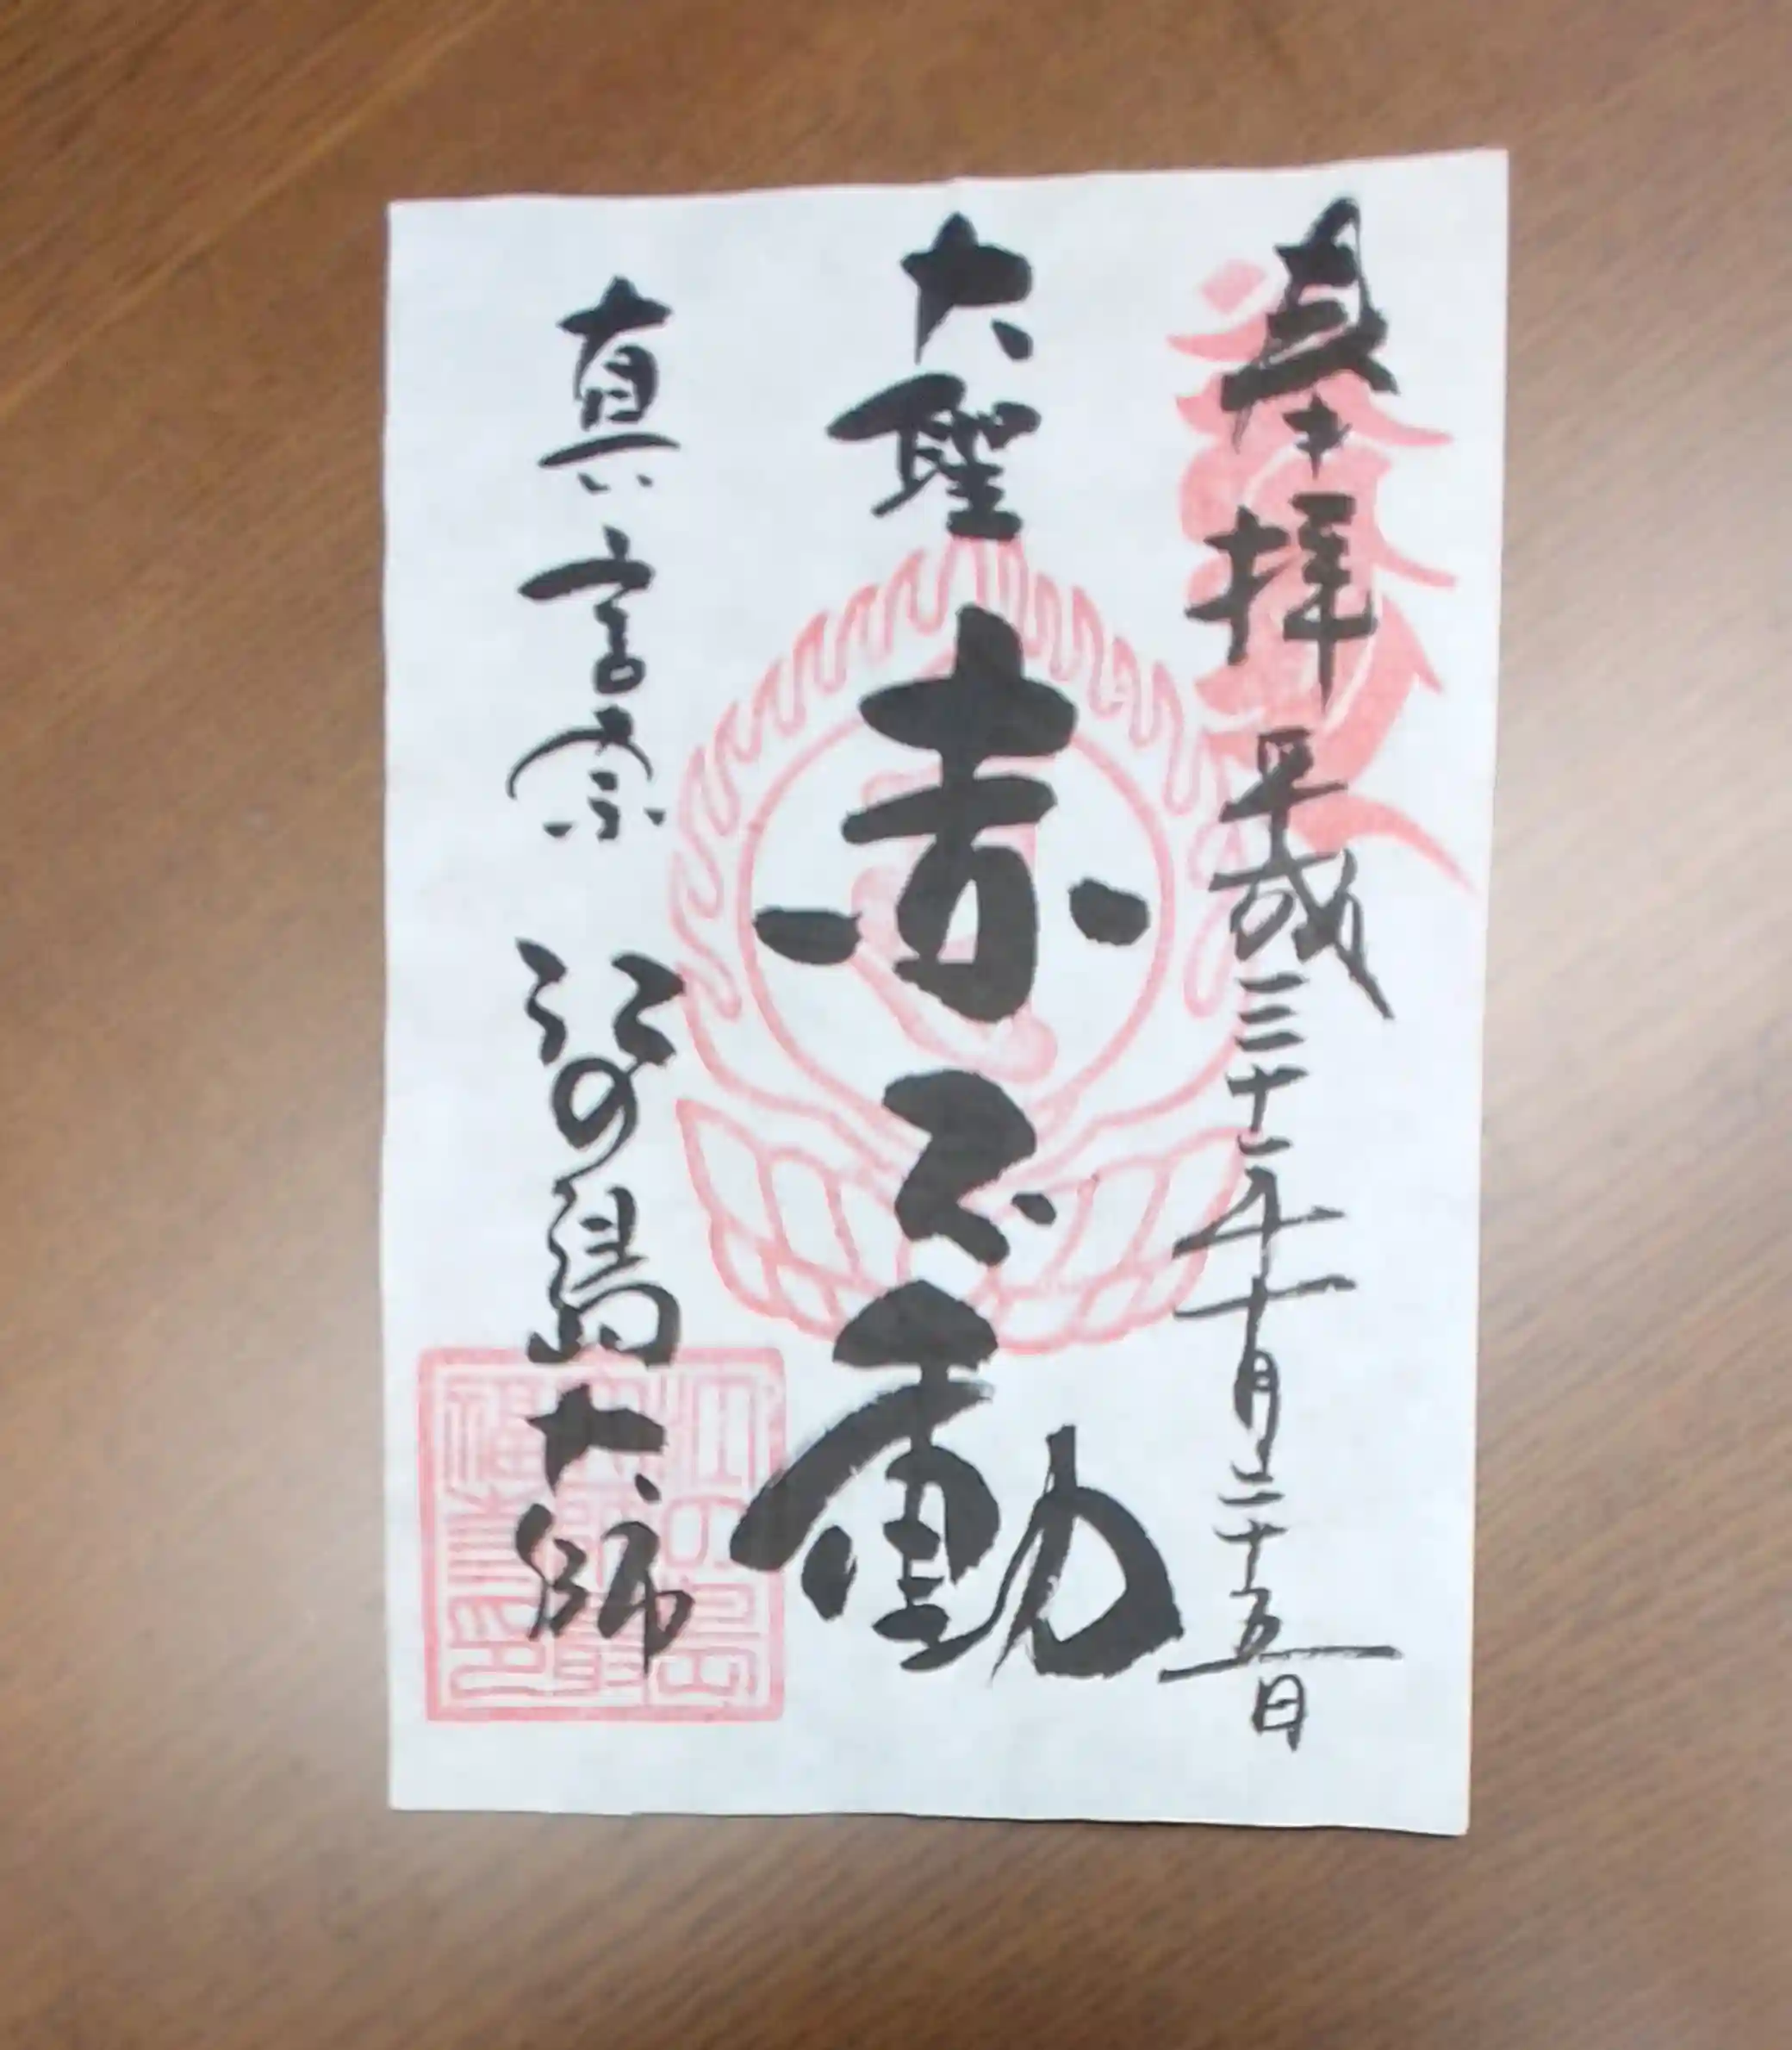 奉拝 平成三十年十月二十五日
大聖 赤不動
真言宗 江の島大師